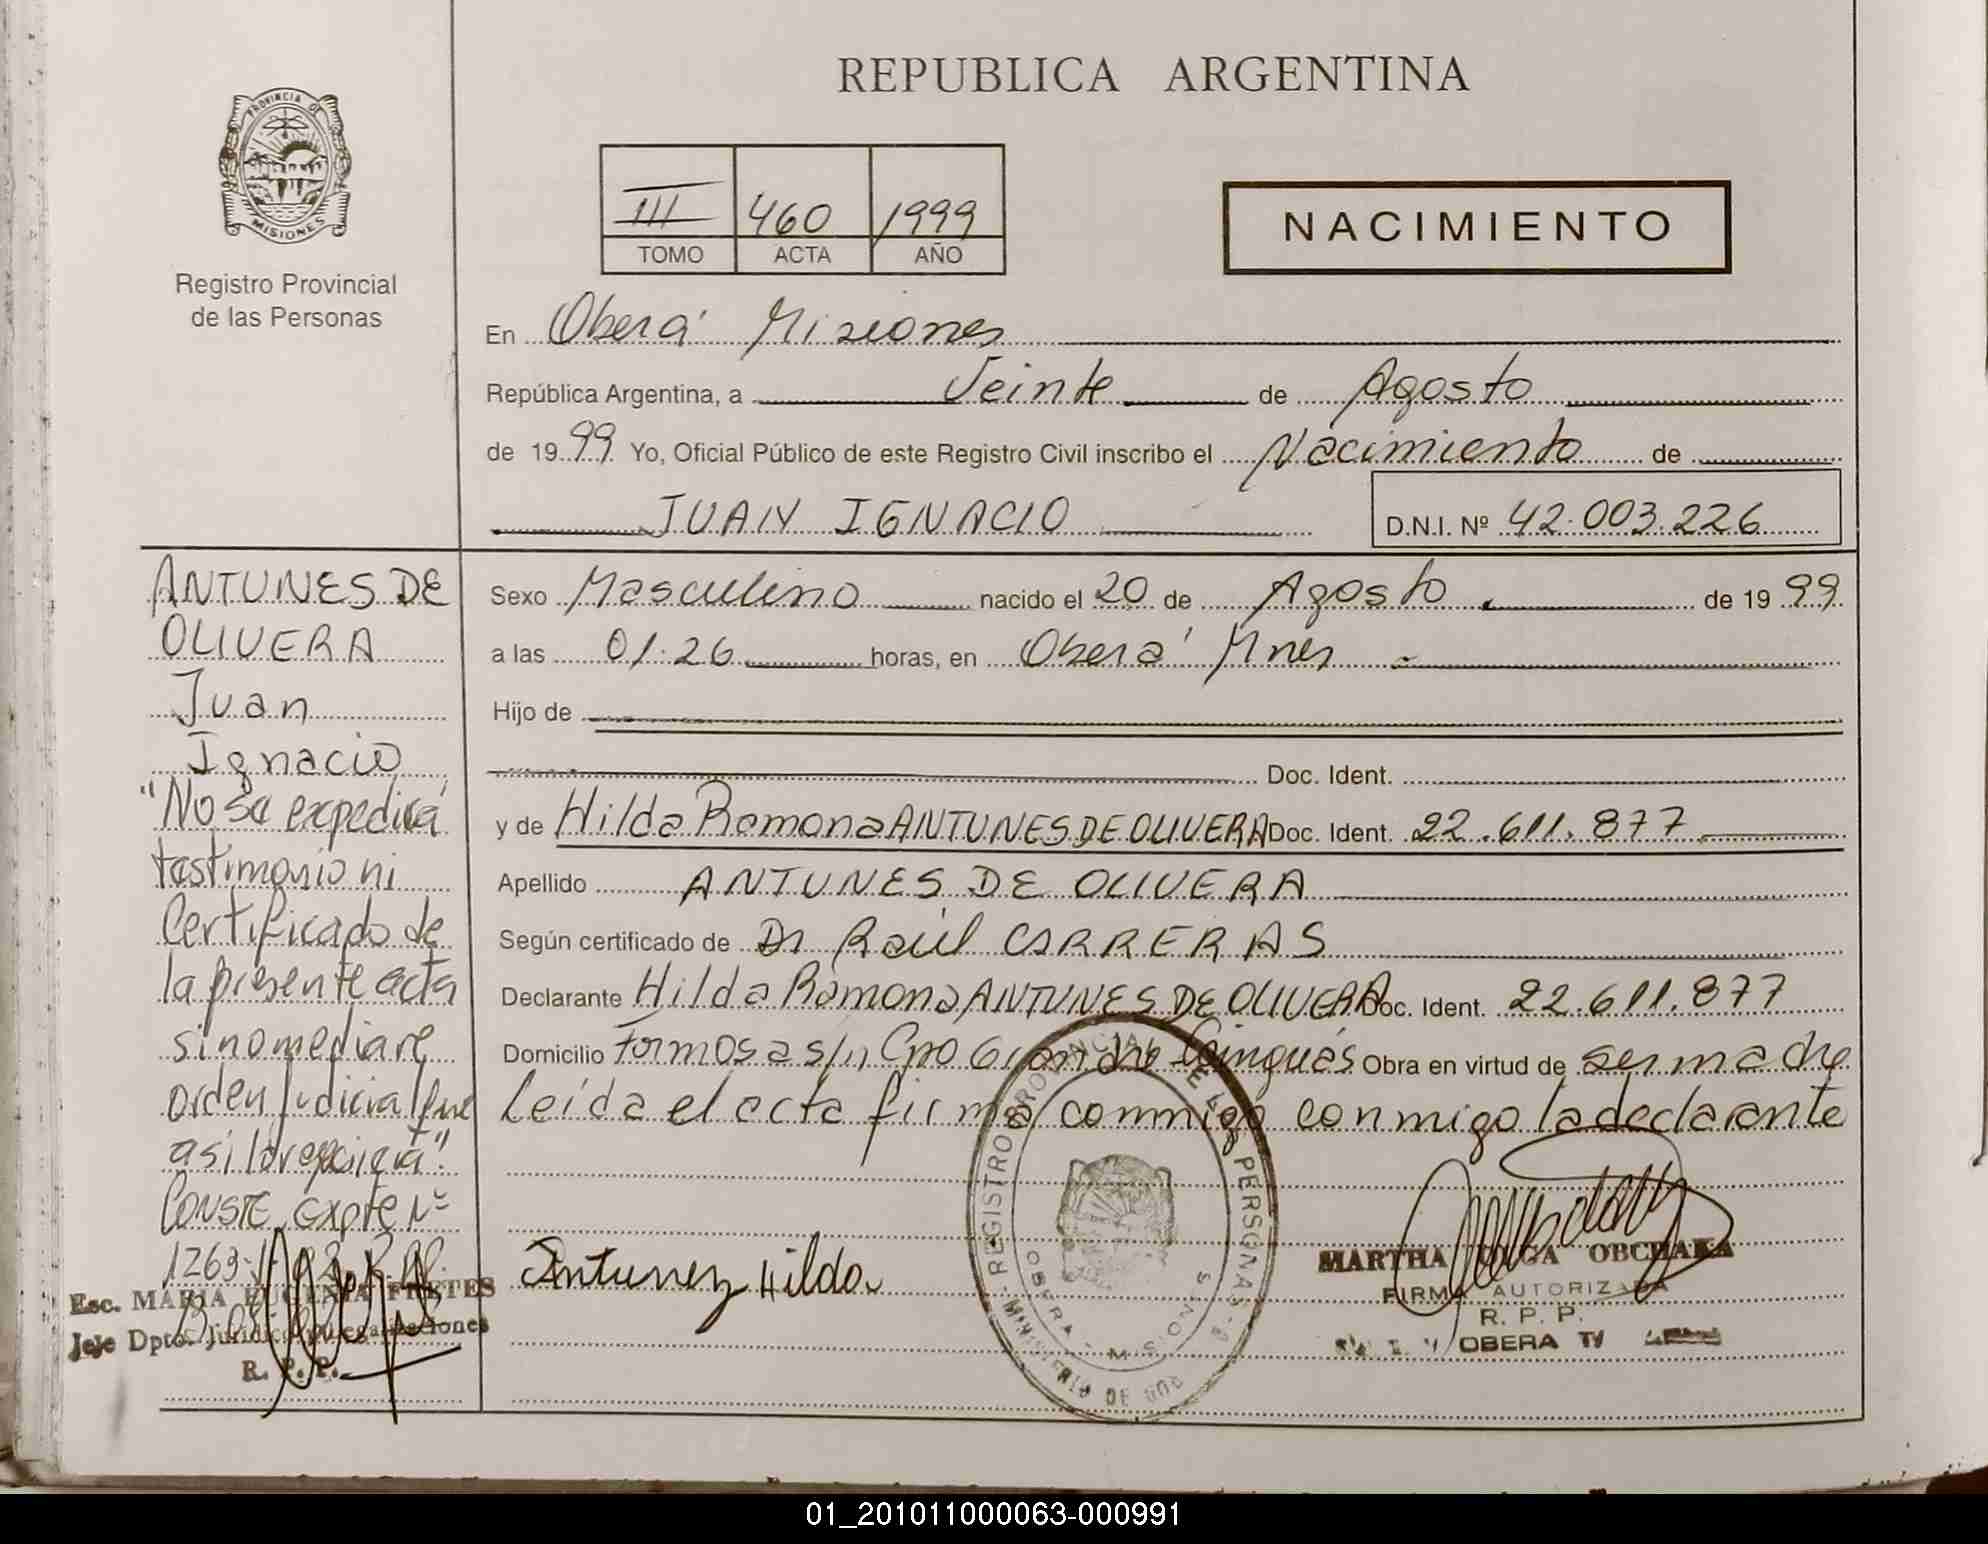 REPUBLICA ARGENTINA
PROVINCIA DE
MISIONES
Registro Provincial
de las Personas
III 460 1999
TOMO ACTA AÑO
NACIMIENTO
En Oberá Misiones
República Argentina, a Veinte de Agosto
de 1999 Yo, Oficial Público de este Registro Civil inscribo el Nacimiento de
JUAN IGNACIO D.N.I. Nº 42.003.226
ANTUNES DE
OLIVERA
Juan
Ignacio
"No se expedirá
testimonio ni
Certificado de
la presente acta
si no mediare
orden judicial que
asi lo requiera".
CONSTE, expte Nº
1263
Esc. MARIA EUGENIA FRETES
Jefe Dpto.
R. P. P.
Sexo Masculino nacido el 20 de Agosto de 1999
a las 01.26 horas, en Oberá Mnes
Hijo de
Doc. Ident.
y de Hilda Ramona ANTUNES DE OLIVERA Doc. Ident. 22.611.877
Apellido ANTUNES DE OLIVERA
Según certificado de Dr Raúl CARRERAS
Declarante Hilda Ramona ANTUNES DE OLIVERA Doc. Ident. 22.611.877
Domicilio Formosa s/n Cpo Grande Cainguás Obra en virtud de ser madre
Leída el acta firma conmigo conmigo la declarante
Antunez Hilda
REGISTRO PROVINCIAL DE LAS PERSONAS
OBERA - MISIONES
MINISTERIO DE GOB
MARTHA OLGA OBCHAKA
FIRMA AUTORIZADA
R. P. P.
OBERA
01_201011000063-000991